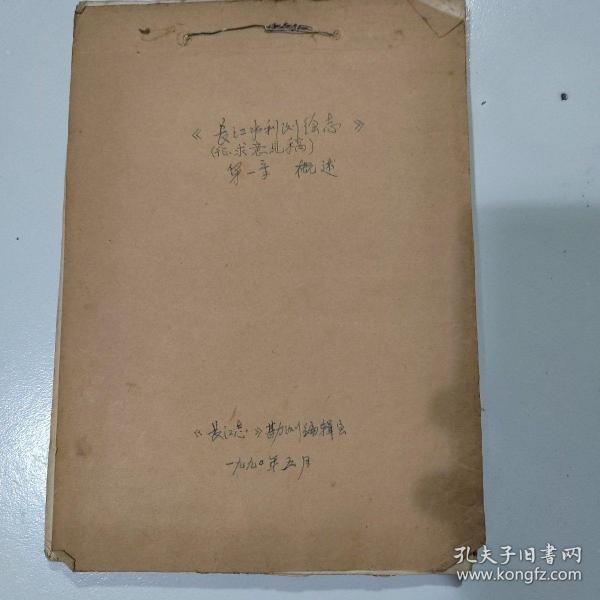 《长江水利测绘志》
(征求意见稿)
第一章 概述
《长江志》勘测编辑室
一九九〇年五月
孔夫子旧书网
www.kongfz.com